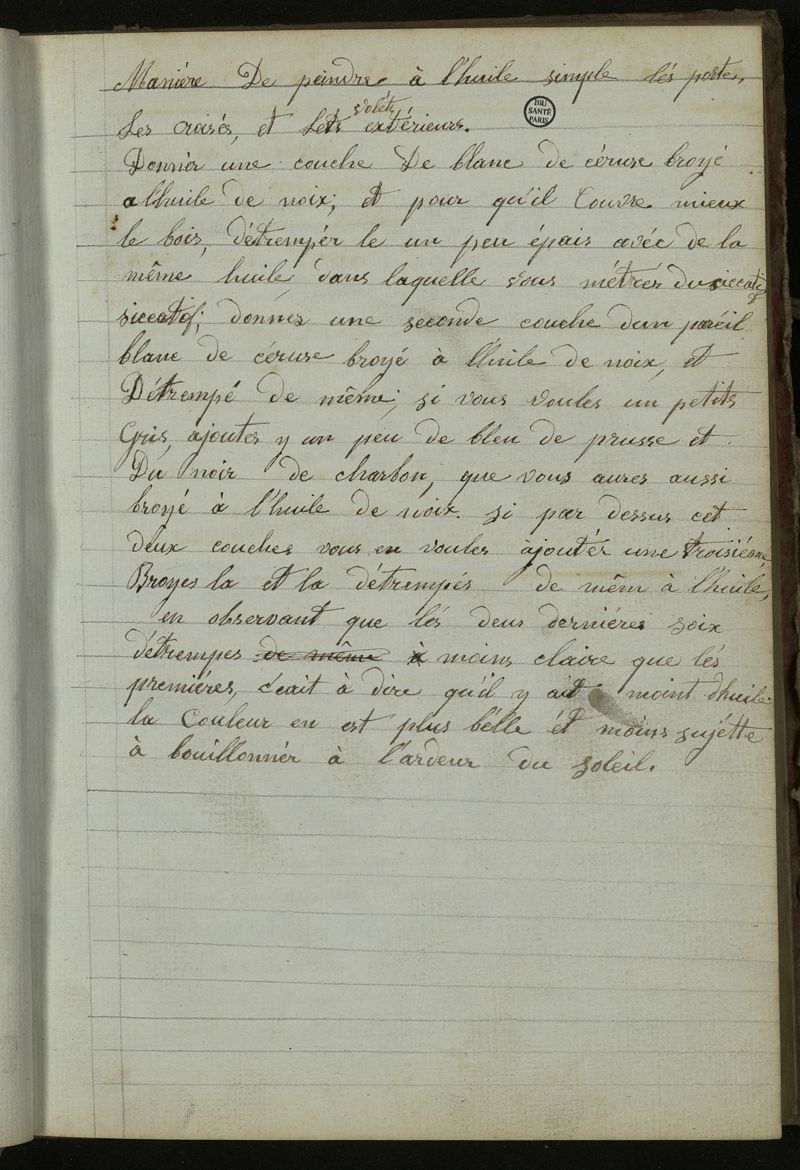 Maniére De peindre à l'huile simple lés porte,
Les croisés, et Lés volét extérieurs.
BIU
SANTÉ
PARIS
Donnér une couche De blanc de céruse broyé
a l'huile de noix; et pour qu'il Couvre mieux
le bois, détrempér le un peu épais avéc de la
même huile, dans laquelle vous métrés du siccatif
siccatif; donnes une seconde couche d'un paréil
blanc de céruse broyé à l'huile de noix, et
Détrempé de même; si vous voules un petits
Gris, ajoutes y un peu de bleu de prusse et
Du noir de charbon, que vous aures aussi
broyé à l'huile de noix. si par dessus cet
deux couches vous en voules ajoutér une troisiéme,
Broyes la et la détrempés de mêm à l'huile,
en observant que lés deus derniéres soix
détrempes de même à moins claire que lés
premiéres, c'eait à dire qu'il y ait moint d'huile.
la Couleur en est plus bélle ét moins sujétte
à bouillonnér à l'ardeur du soleil.